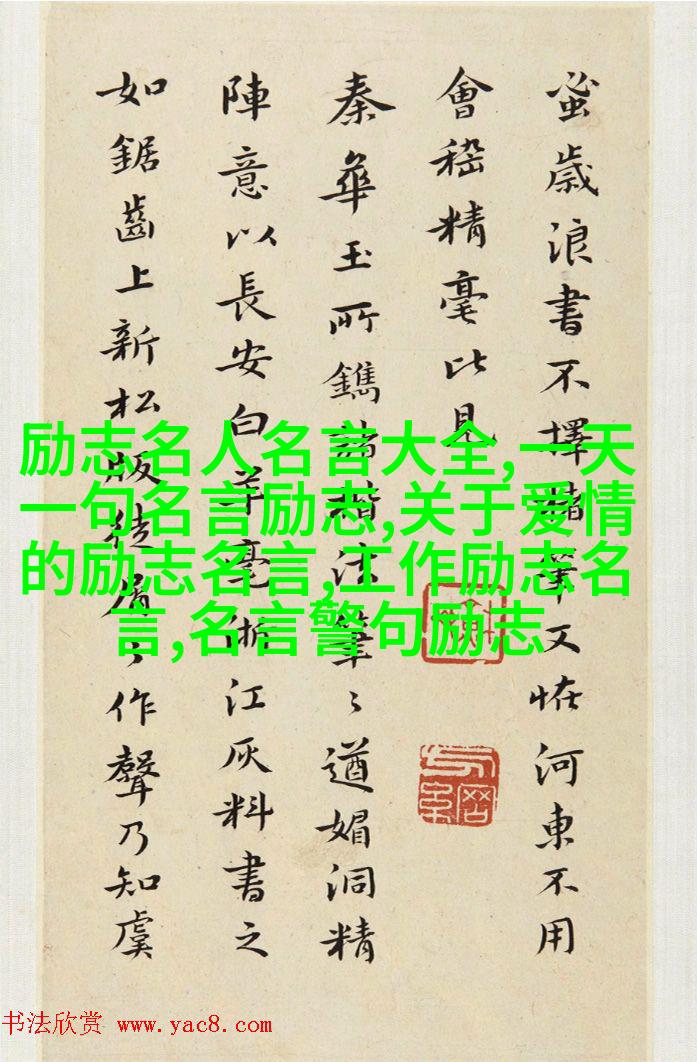 蚤歳浪書不擇諸筆又恠河東不用
會稽精毫比見
秦華玉所鐫諸楷法筆〻遒媚洞精
陣意以長安白羊毫浙江灰料書之
如鋸齒上新松版徒屑〻作聲乃知虞
励志名人名言大全,一天
一句名言励志,关于爱情
的励志名言,工作励志名
言,名言警句励志
书法欣赏 www.yac8.com